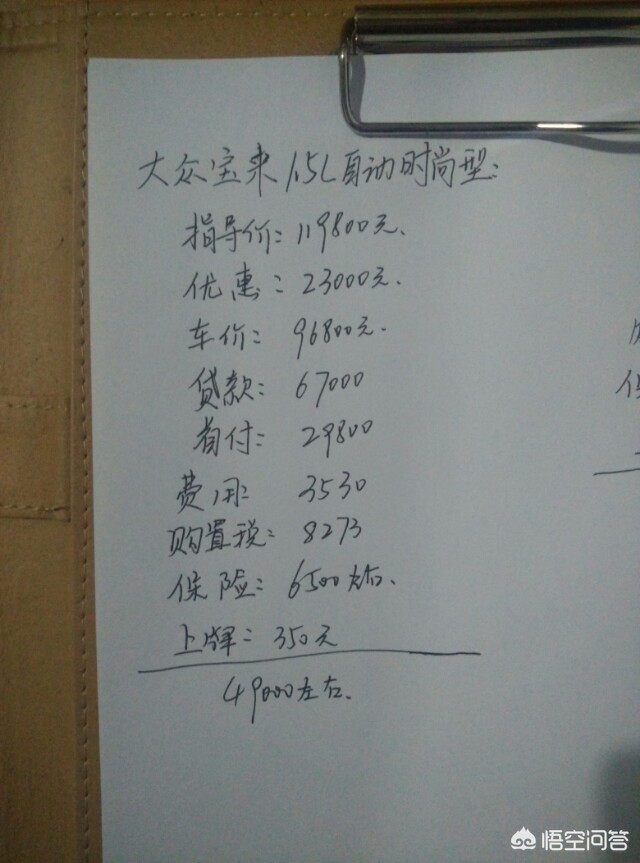 大众宝来1.5L自动时尚型:
指导价: 119800元.
优惠: 23000元.
车价: 96800元.
贷款: 67000
首付: 29800
费用: 3530
购置税: 8273
保险: 6500左右.
上牌: 350元
49000左右.
悟空问答